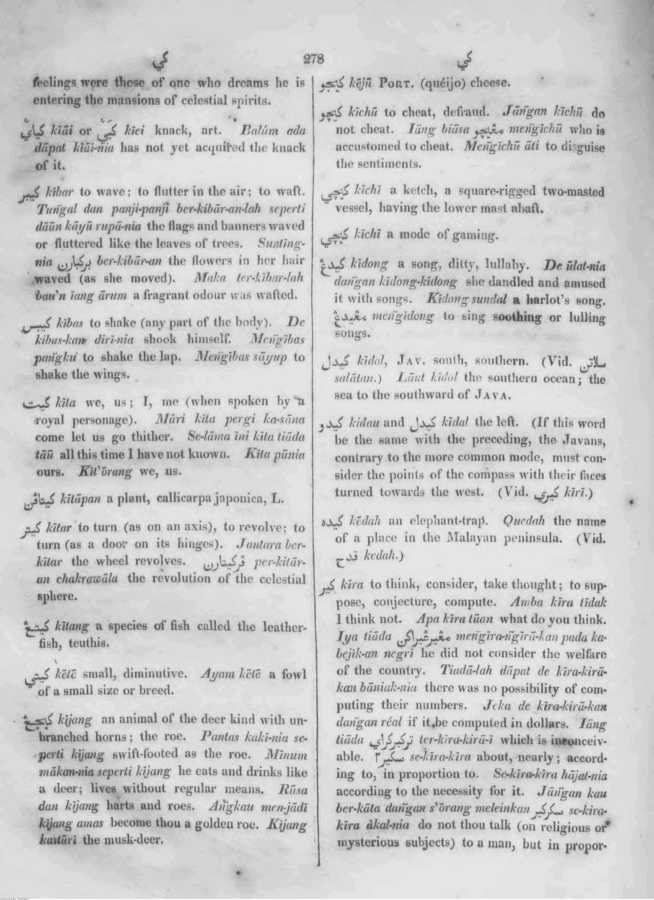 كي 278 كي
feelings were those of one who dreams he is
entering the mansions of celestial spirits.
كياي kīāi or كيي kīei knack, art. Balūm ada
dāpat kīāi-nia has not yet acquired the knack
of it.
كيبر kībar to wave; to flutter in the air; to waft.
Tuṅgal dan panji-panjī ber-kībār-an-lah seperti
dāūn kāyū rupā-nia the flags and banners waved
or fluttered like the leaves of trees. Suntīng-
nia بركيبارن ber-kībār-an the flowers in her hair
waved (as she moved). Maka ter-kībar-lah
bau'n īang ārum a fragrant odour was wafted.
كيبس kības to shake (any part of the body). De
kības-kan dīrī-nia shook himself. Meṅgības
paṅgku to shake the lap. Meṅgības sāyup to
shake the wings.
كيت kīta we, us; I, me (when spoken by a
royal personage). Mārī kīta pergi ka-sāna
come let us go thither. Se-lāma īni kīta tiāda
tāū all this time I have not known. Kīta pūnia
ours. Kīt'ōrang we, us.
كيتافن kītāpan a plant, callicarpa japonica, L.
كيتر kītar to turn (as on an axis), to revolve; to
turn (as a door on its hinges). Jantara ber-
kītar the wheel revolves. فركيتارن per-kītār-
an chakrawāla the revolution of the celestial
sphere.
كيتڠ kītang a species of fish called the leather-
fish, teuthis.
كيتي kētē small, diminutive. Ayam kētē a fowl
of a small size or breed.
كيجڠ kījang an animal of the deer kind with un-
branched horns; the roe. Pantas kakī-nia se-
perti kījang swift-footed as the roe. Mīnum
mākan-nia seperti kījang he eats and drinks like
a deer; lives without regular means. Rūsa
dan kījang harts and roes. Aṅgkau men-jādī
kījang amas become thou a golden roe. Kījang
kastūrī the musk-deer.
كيجو kējū PORT. (quéijo) cheese.
كيچو kīchū to cheat, defraud. Jāṅgan kīchū do
not cheat. Iāng bīāsa مڠيچو meṅgīchū who is
accustomed to cheat. Meṅgīchū āti to disguise
the sentiments.
كيچي kīchī a ketch, a square-rigged two-masted
vessel, having the lower mast abaft.
كيچي kīchī a mode of gaming.
كيدڠ kīdong a song, ditty, lullaby. De ūlat-nia
daṅgan kīdong-kīdong she dandled and amused
it with songs. Kīdong sundal a harlot's song.
مڠيدڠ meṅgīdong to sing soothing or lulling
songs.
كيدل kīdal, JAV. south, southern. (Vid. سلاتن
salātan.) Lāut kīdol the southern ocean; the
sea to the southward of JAVA.
كيدو kīdau and كيدل kīdal the left. (If this word
be the same with the preceding, the Javans,
contrary to the more common mode, must con-
sider the points of the compass with their faces
turned towards the west. (Vid. كيري kīrī.)
كيده kēdah an elephant-trap. Quedah the name
of a place in the Malayan peninsula. (Vid.
قدح kedah.)
كير kīra to think, consider, take thought; to sup-
pose, conjecture, compute. Amba kīra tīdak
I think not. Apa kīra tūan what do you think.
Iya tiāda مڠيرڠيراكن meṅgīra-ṅgīrā-kan pada ka-
bejīk-an negrī he did not consider the welfare
of the country. Tiadā-lah dāpat de kīra-kīrā-
kan bāniak-nia there was no possibility of com-
puting their numbers. Jeka de kīra-kīrā-kan
daṅgan réal if it be computed in dollars. Iāng
tiāda تركيركراي ter-kīra-kīrā-ī which is inconceiv-
able. سكير٢ se-kīra-kīra about, nearly; accord-
ing to, in proportion to. Se-kīra-kīra hājat-nia
according to the necessity for it. Jāṅgan kau
ber-kāta daṅgan s'ōrang meleinkan سكركير se-kira-
kīra ākal-nia do not thou talk (on religious or
mysterious subjects) to a man, but in propor-